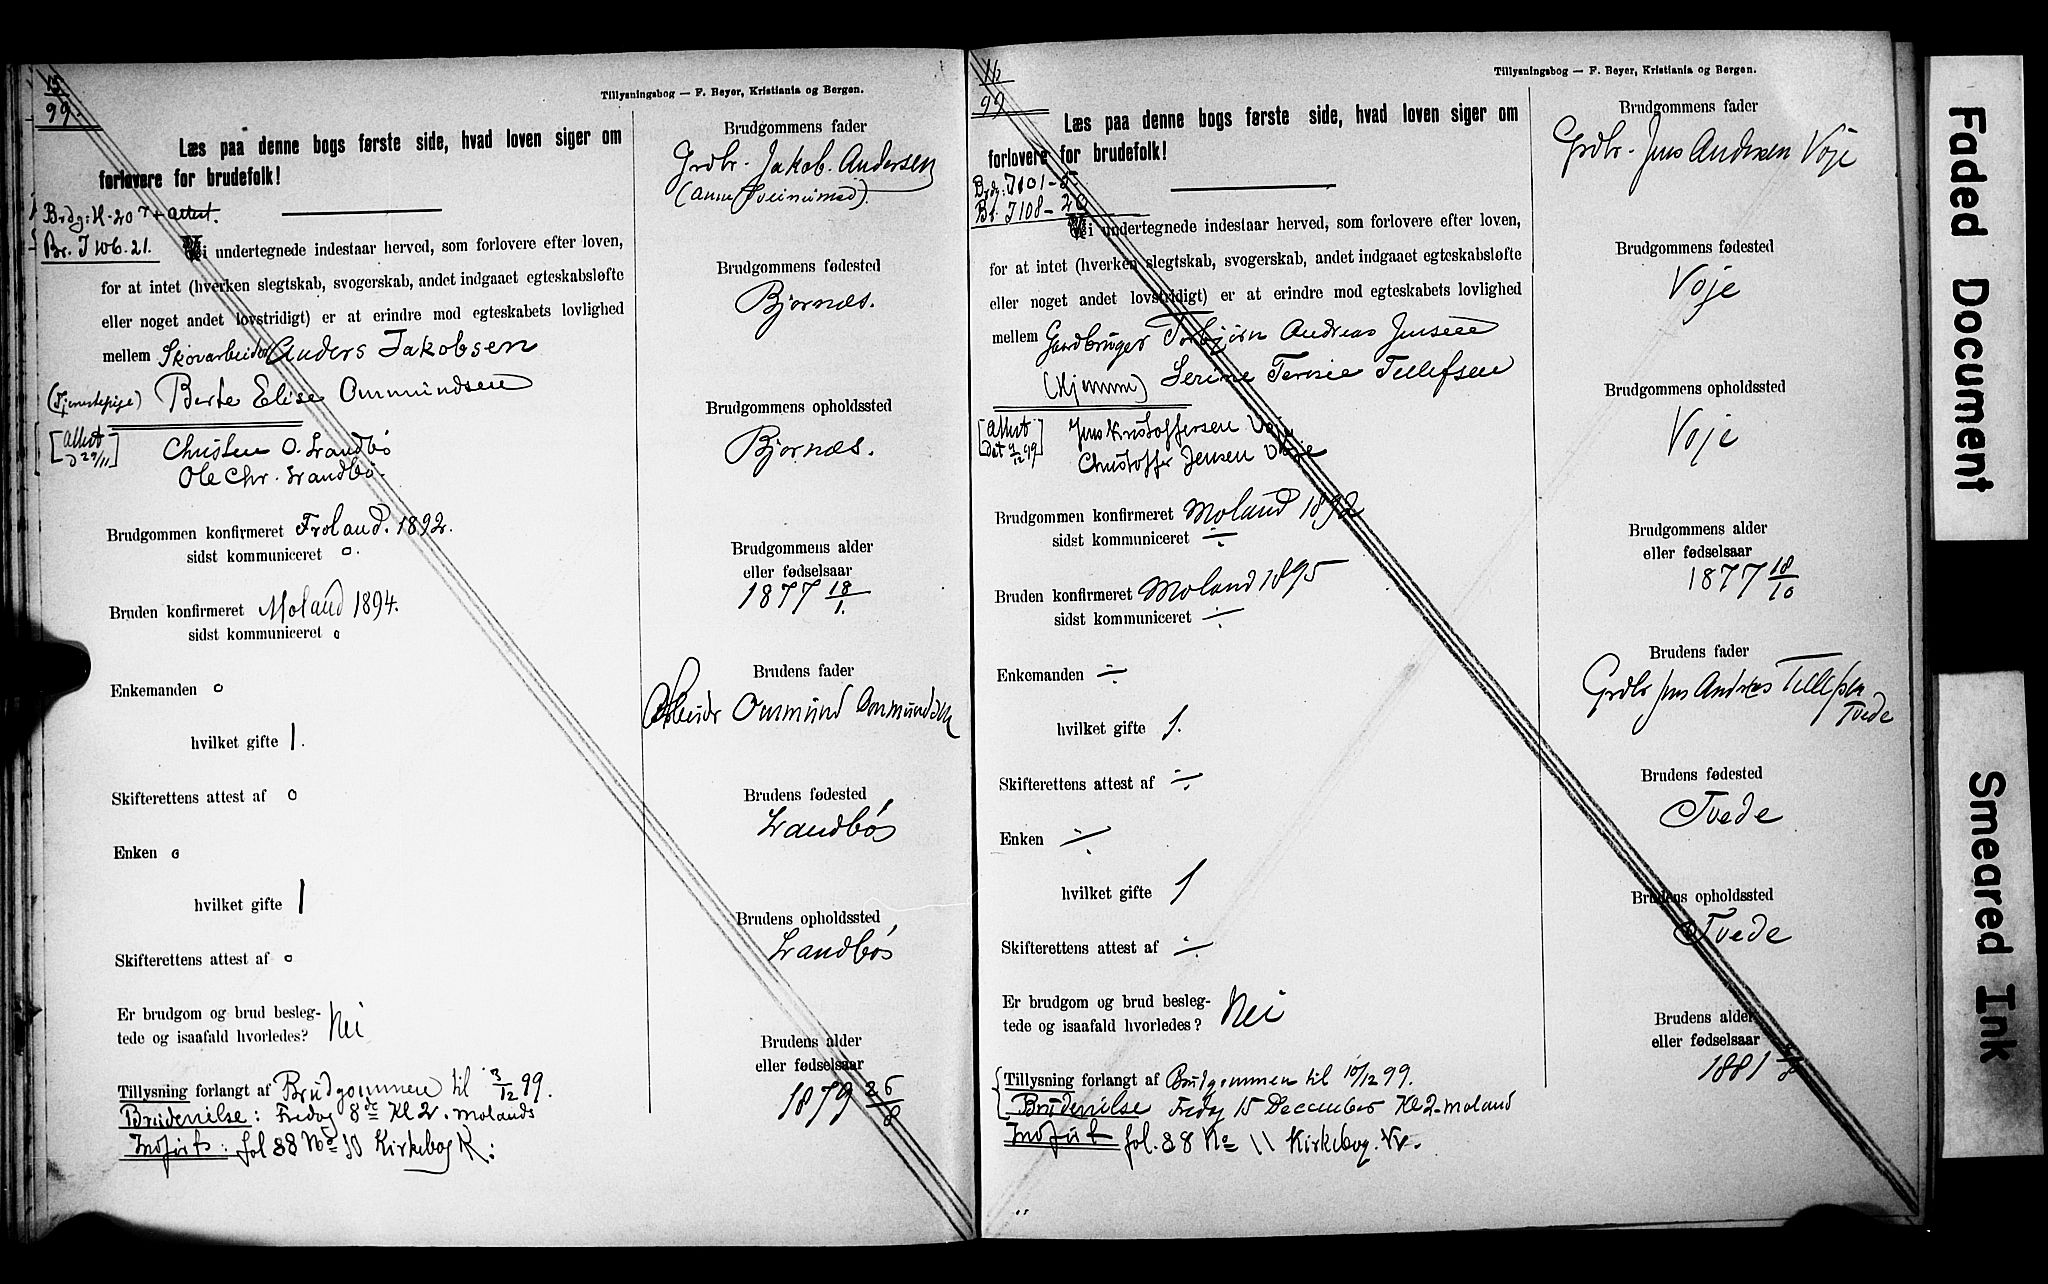 15
99.
Tillysningsbog — F. Beyer, Kristiania og Bergen.
Læs paa denne bogs første side, hvad loven siger om
forlovere for brudefolk!
Brdg: K. 207 + attest.
Br. I 106. 21.
Vi undertegnede indestaar herved, som forlovere efter loven,
for at intet (hverken slegtskab, svogerskab, andet indgaaet egteskabsløfte
eller noget andet lovstridigt) er at erindre mod egteskabets lovlighed
mellem Skovarbeider Anders Jakobsen
(Tjenestepige) Berte Elise Ommundsen
[attest
d 29/11]
Christen O. Landbø
Ole Chr. Landbø.
Brudgommen konfirmeret Froland. 1892.
sidst kommuniceret o.
Bruden konfirmeret Moland 1894.
sidst kommuniceret o
Enkemanden o
hvilket gifte 1.
Skifterettens attest af o
Enken o
hvilket gifte 1
Skifterettens attest af o
Er brudgom og brud besleg-
tede og isaafald hvorledes? Nei
Tillysning forlangt af Brudgommen til 3/12 99.
Brudevielse: Fredag 8de Kl 2. Molands
Indført: fol 88 No 10 Kirkebog K:
Brudgommens fader
Grdbr. Jakob Andersen
Brudgommens fødested
Bjornæs.
Brudgommens opholdssted
Bjornæs.
Brudgommens alder
eller fødselsaar
1877 18/1.
Brudens fader
Arbeider Ommund Ommundsen
Brudens fødested
Landbøs
Brudens opholdssted
Landbøs
Brudens alder
eller fødselsaar
1879 26/8
16
99
Tillysningsbog — F. Beyer, Kristiania og Bergen.
Læs paa denne bogs første side, hvad loven siger om
forlovere for brudefolk!
Brdg: I 101-5
Br. I 108-26
Vi undertegnede indestaar herved, som forlovere efter loven,
for at intet (hverken slegtskab, svogerskab, andet indgaaet egteskabsløfte
eller noget andet lovstridigt) er at erindre mod egteskabets lovlighed
mellem Gaardbruger Torbjørn Andreas Jensen
(Hjemme) Serine Terese Tellefsen
[attest
dat 7/12 99]
Jens Kristoffersen Voje
Christoffer Jensen Voje
Brudgommen konfirmeret Moland 1892
sidst kommuniceret ÷
Bruden konfirmeret Moland 1895
sidst kommuniceret ÷
Enkemanden ÷
hvilket gifte 1.
Skifterettens attest af ÷
Enken ÷
hvilket gifte 1
Skifterettens attest af ÷
Er brudgom og brud besleg-
tede og isaafald hvorledes? Nei
Tillysning forlangt af Brudgommen til 10/12 99.
Brudevielse Fredag 15 December Kl 2 - Moland
Indført fol. 88 No 11 Kirkebog.
Brudgommens fader
Grdbr. Jens Andersen Voje
Brudgommens fødested
Voje
Brudgommens opholdssted
Voje
Brudgommens alder
eller fødselsaar
1877 18/10
Brudens fader
Grdbr Jens Andreas Tellefsen
Tvede
Brudens fødested
Tvede
Brudens opholdssted
Tvede
Brudens alder
eller fødselsaar
1881
Faded Document
Smeared Ink